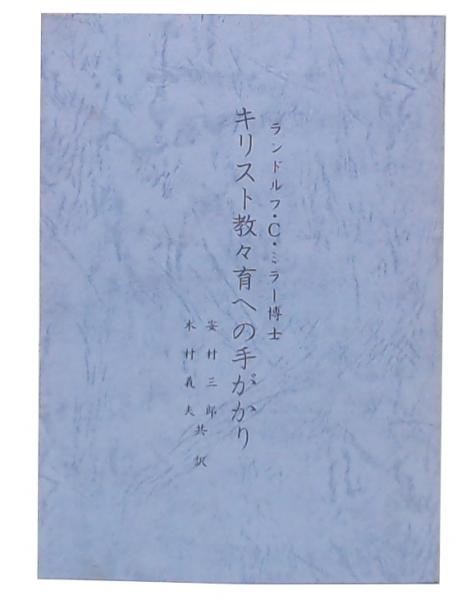 ランドルフ・C・ミラー博士
キリスト教々育への手がかり
安村三郎
木村義夫
共訳